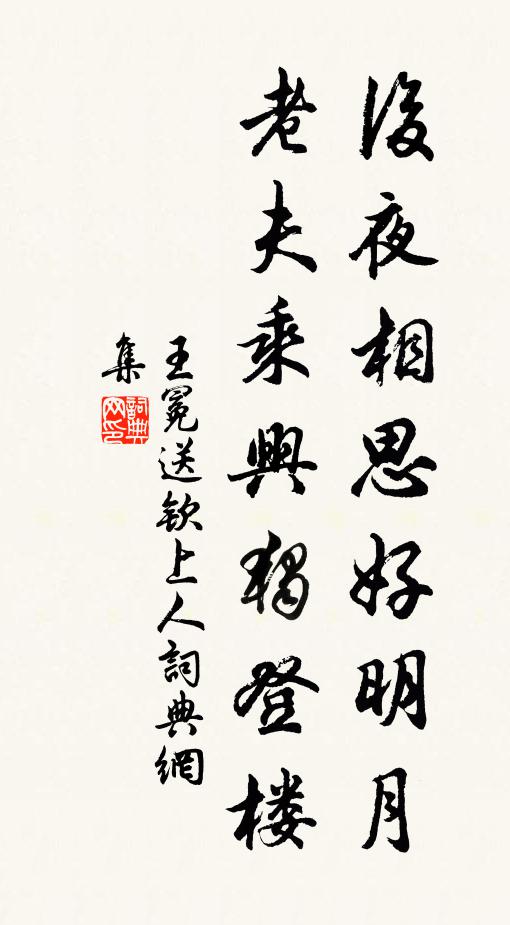 後夜相思好明月
老夫乘興獨登楼
王冕送欽上人詞典網
集
詞典
网印